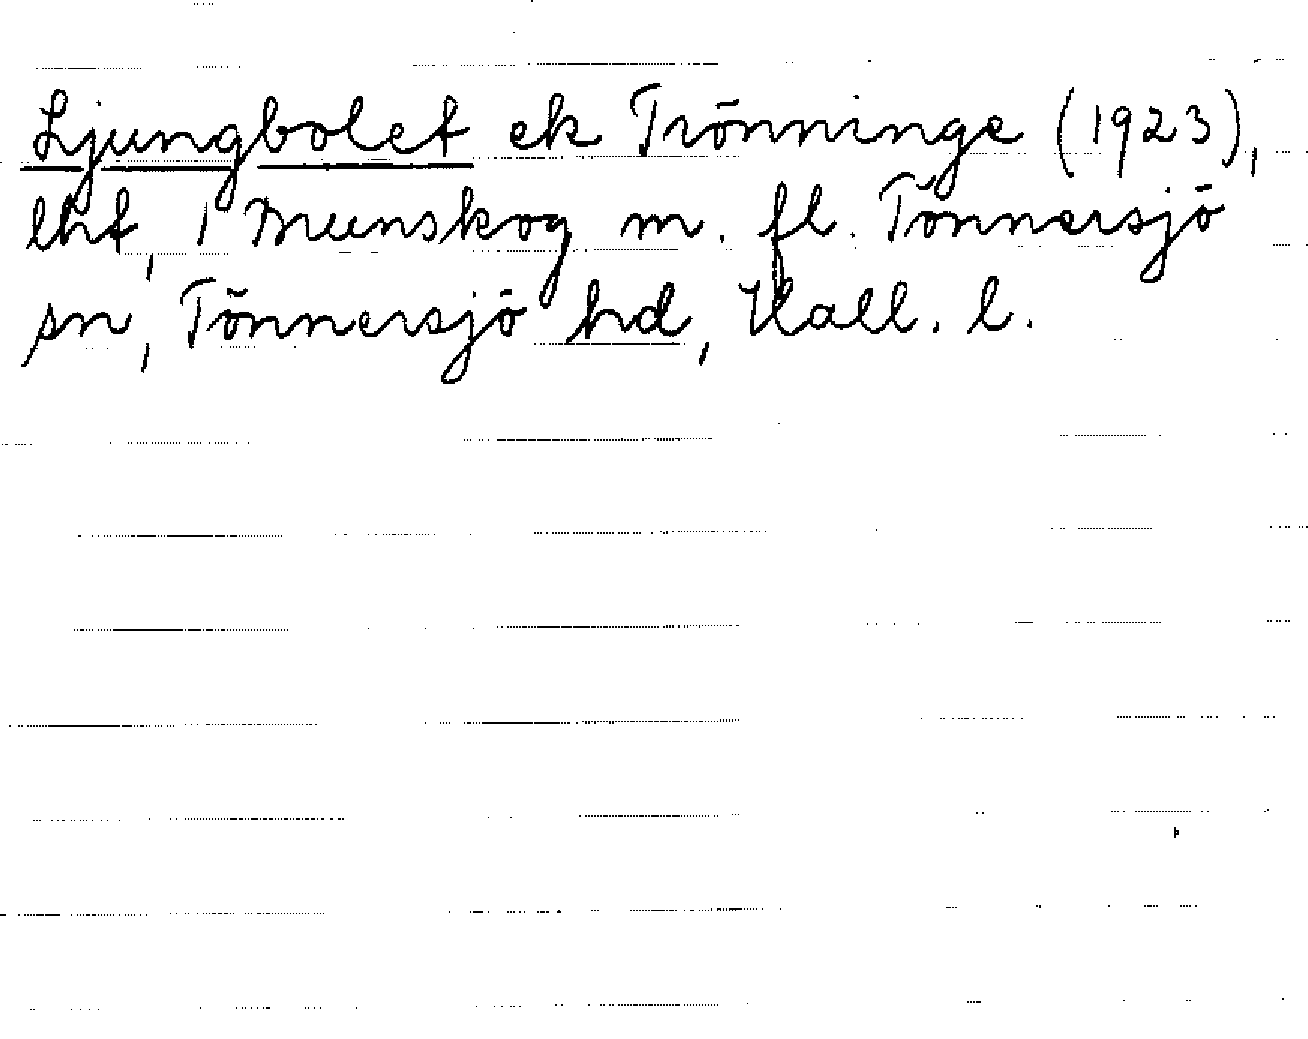 Ljungbolet ek Trönninge (1923),
lht, 1 Munskog m. fl. Tönnersjö
sn, Tönnersjö hd, Hall. l.